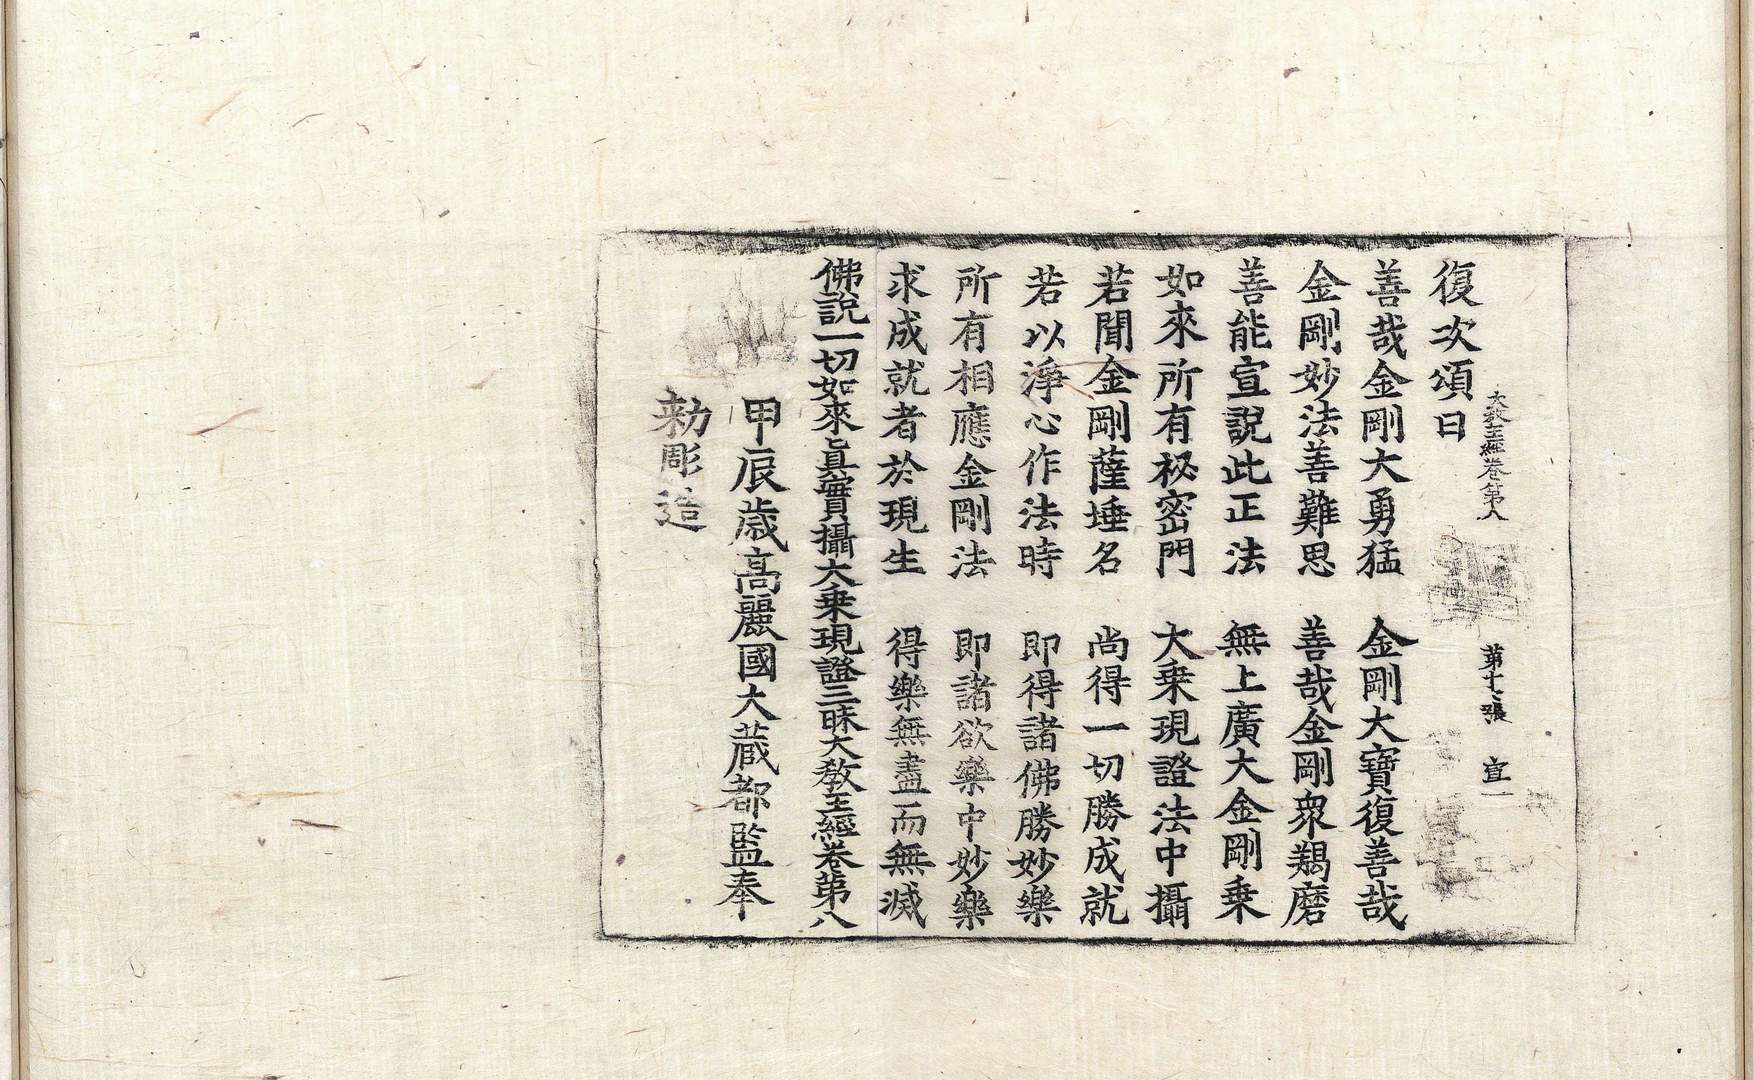 大教王經卷第八 第十二張 宣
復次頌曰
善哉金剛大勇猛 金剛大寶復善哉
金剛妙法善難思 善哉金剛衆羯磨
善能宣說此正法 無上廣大金剛乗
如來所有祕密門 大乗現證法中攝
若聞金剛薩埵名 尚得一切勝成就
若以淨心作法時 即得諸佛勝妙樂
所有相應金剛法 即諸欲樂中妙樂
求成就者於現生 得樂無盡而無滅
佛說一切如來眞實攝大乗現證三昧大教王經卷第八
甲辰歲高麗國大藏都監奉
勑彫造